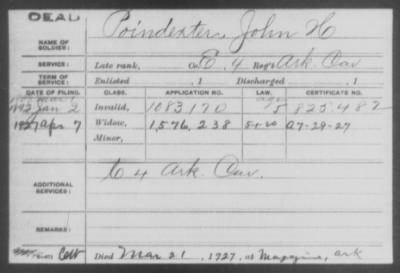 DEAD
NAME OF SOLDIER: Poindexter, John H
SERVICE: Late rank, Co. E, 4 Reg't Ark. Cav
TERM OF SERVICE: Enlisted , 1 Discharged , 1
DATE OF FILING. CLASS. APPLICATION NO. LAW. CERTIFICATE NO.
Jan 2 Invalid, 1083170 825.482
1927 Apr 7 Widow, 1,576,238 5-1-20 A7-29-27
Minor,
ADDITIONAL SERVICES: Co 4 Ark. Cav.
REMARKS:
Died Mar 21, 1927, at Magazine, Ark